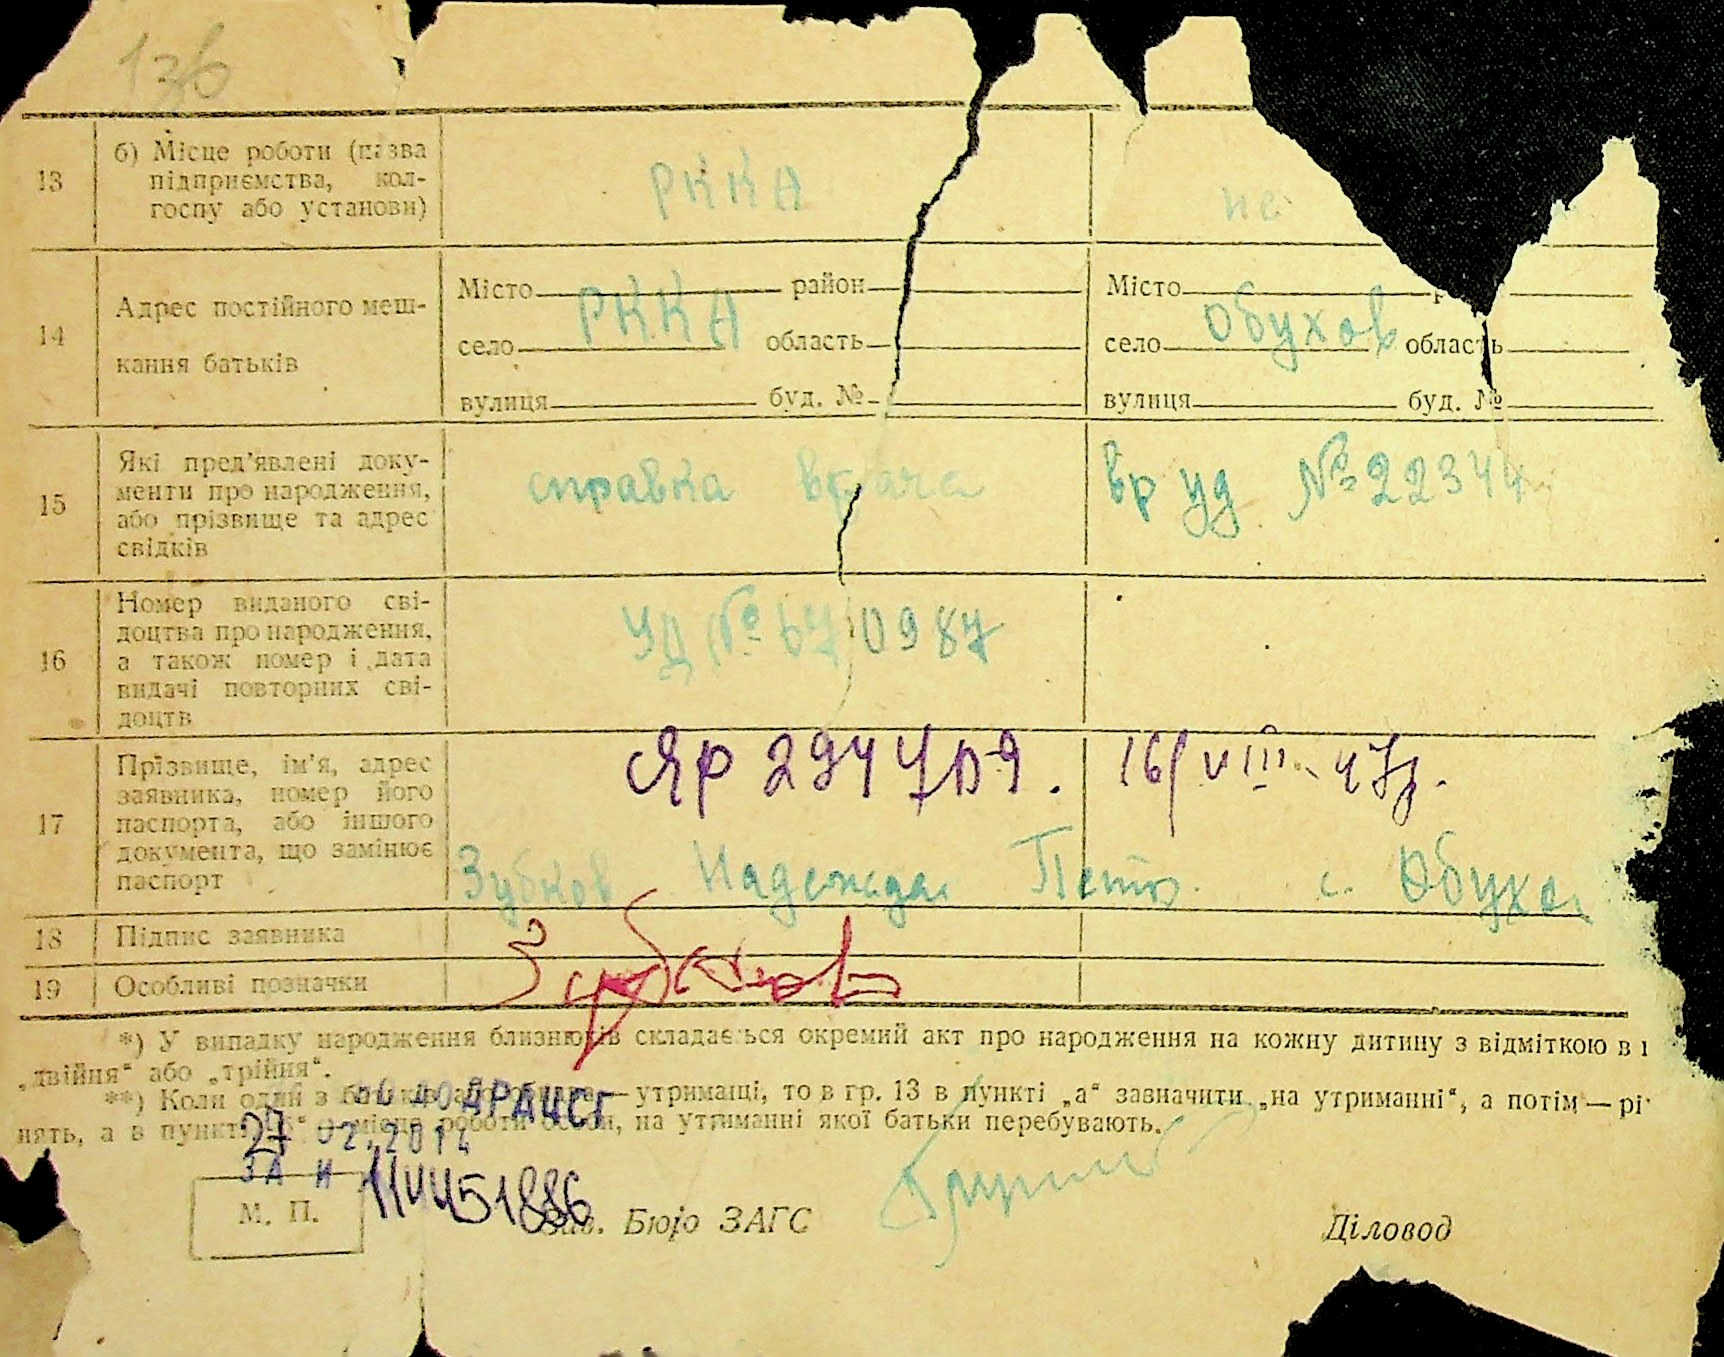 136
13
б) Місце роботи (назва
підприємства, кол-
госпу або установи)
РККА
не
14
Адрес постійного меш-
кання батьків
Місто район
РККА
село область
вулиця буд. №
Місто
Обухов
село область
вулиця буд. №
15
Які пред'явлені доку-
менти про народження,
або прізвище та адрес
свідків
справка врача
вр уд № 22344
16
Номер виданого сві-
доцтва про народження,
а також номер і дата
видачі повторних сві-
доцтв
УД № 670987
17
Прізвище, ім'я, адрес
заявника, номер його
паспорта, або іншого
документа, що замінює
паспорт
16/VIII-47г.
Зубков Надежда Петр. с. Обухов
18
Підпис заявника
19
Особливі позначки
*) У випадку народження близнюків складається окремий акт про народження на кожну дитину з відміткою в
„двійня“ або „трійня“.
**) Коли один з батьків — утриманці, то в гр. 13 в пункті „а“ зазначити „на утриманні“, а потім —
нять, а в пункті місце роботи особи, на утриманні якої батьки перебувають.
ДО ДРАЦСГ
27 02.2014
ЗА №
М. П.
Зав. Бюро ЗАГС
Діловод